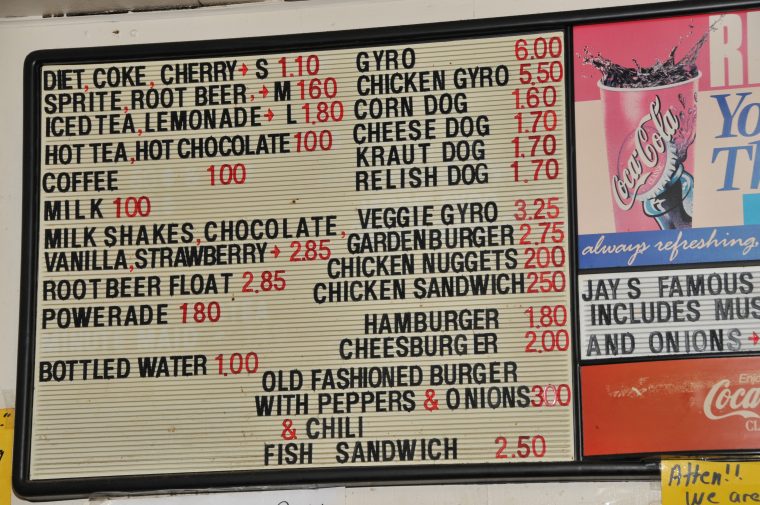 DIET, COKE, CHERRY → S 1.10
SPRITE, ROOT BEER, → M 160
ICED TEA, LEMONADE → L 1,80
HOT TEA, HOT CHOCOLATE 100
COFFEE 100
MILK 100
MILK SHAKES, CHOCOLATE,
VANILLA, STRAWBERRY → 2.85
ROOT BEER FLOAT 2.85
POWERADE 180
BOTTLED WATER 1.00
GYRO 6.00
CHICKEN GYRO 5.50
CORN DOG 1.60
CHEESE DOG 1.70
KRAUT DOG 1.70
RELISH DOG 1.70
VEGGIE GYRO 3.25
GARDENBURGER 2.75
CHICKEN NUGGETS 200
CHICKEN SANDWICH 250
HAMBURGER 1.80
CHEESBURGER 2.00
OLD FASHIONED BURGER
WITH PEPPERS & ONIONS 300
& CHILI
FISH SANDWICH 2.50
Coca-Cola
always refreshing,
JAY S FAMOUS
INCLUDES MUS
AND ONIONS →
Enjoy
Coca
CL
Atten!!
We are